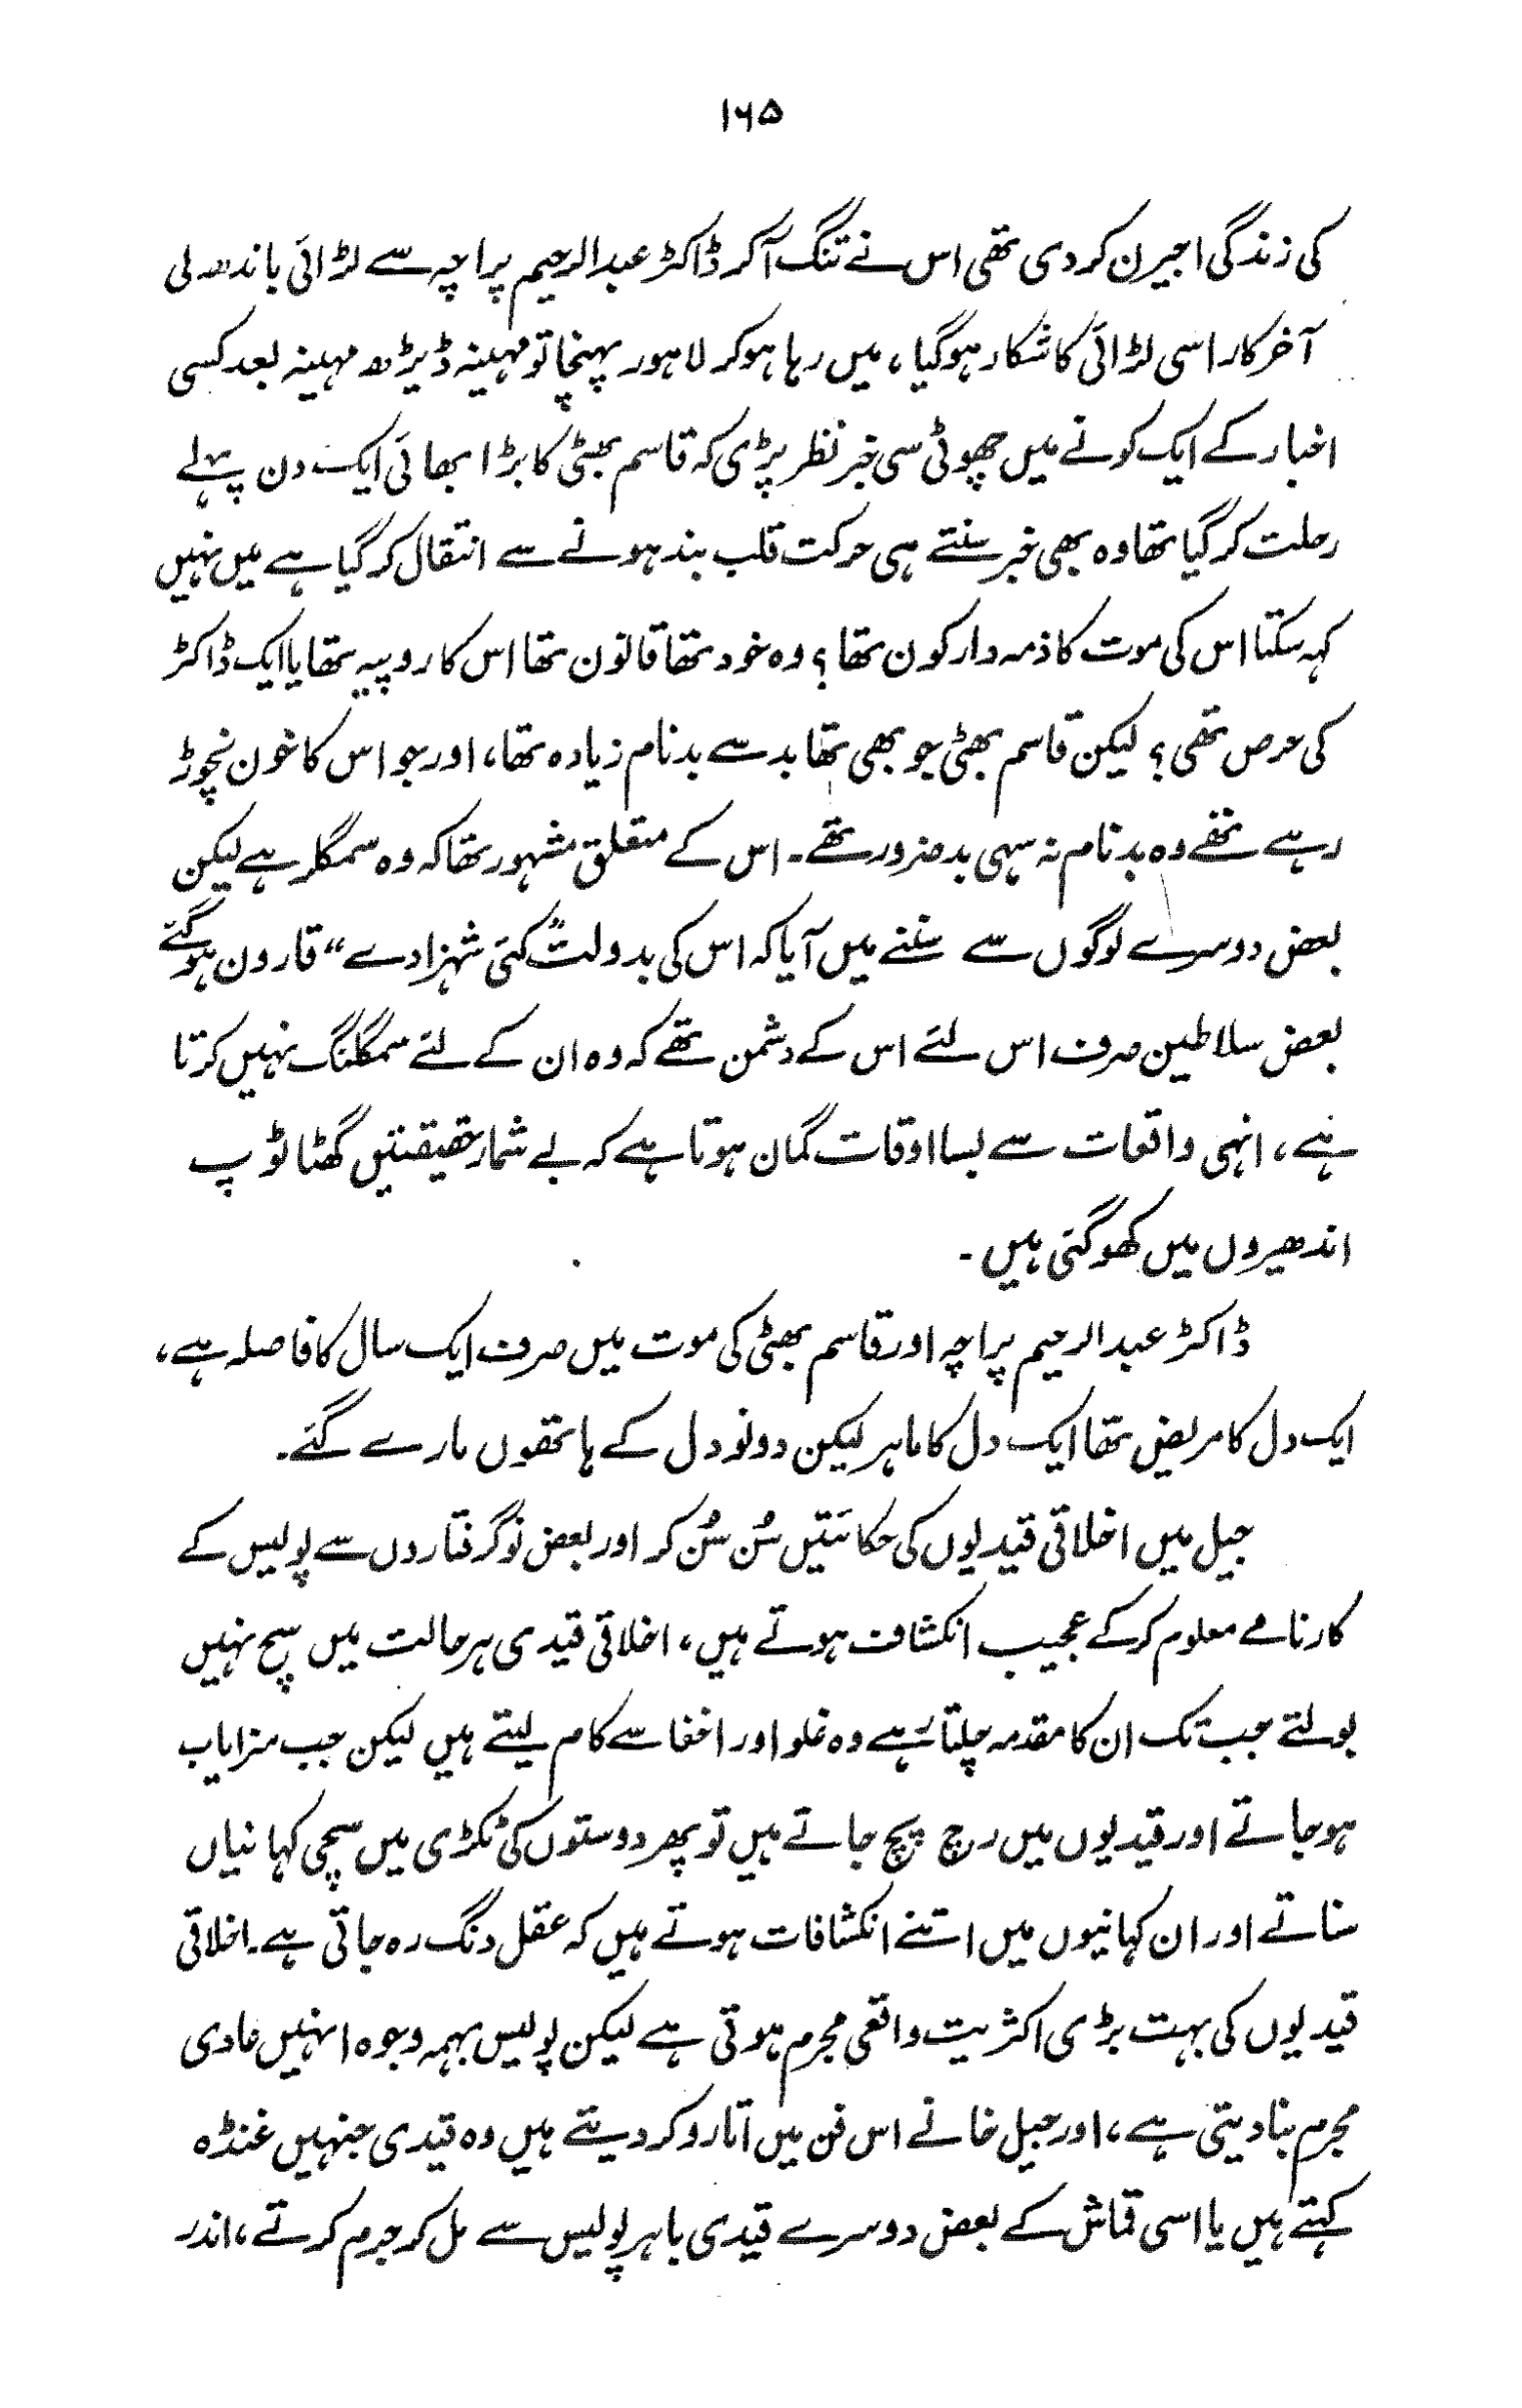 ۱۶۵
کی زندگی اجیرن کر دی تھی اس نے تنگ آکر ڈاکٹر عبدالرحیم پراچہ سے لڑائی باندھ لی
آخر کار اسی لڑائی کا شکار ہوگیا، میں رہا ہوکر لاہور پہنچا تو مہینہ ڈیڑھ مہینہ بعد کسی
اخبار کے ایک کونے میں چھوٹی سی خبر نظر پڑی کہ قاسم بھٹی کا بڑا بھائی ایک دن پہلے
رحلت کر گیا تھا وہ بھی خبر سنتے ہی حرکت قلب بند ہونے سے انتقال کر گیا ہے میں نہیں
کہہ سکتا اس کی موت کا ذمہ دار کون تھا؟ وہ خود تھا قانون تھا اس کا روپیہ تھا یا ایک ڈاکٹر
کی حرص تھی؟ لیکن قاسم بھٹی جو بھی تھا بد سے بدنام زیادہ تھا، اور جو اس کا خون نچوڑ
رہے تھے وہ بدنام نہ سہی بد ضرور تھے۔ اس کے متعلق مشہور تھا کہ وہ سمگلر ہے لیکن
بعض دوسرے لوگوں سے سننے میں آیا کہ اس کی بدولت "کئی شہزادے" قارون ہوگئے
بعض سلاطین صرف اس لئے اس کے دشمن تھے کہ وہ ان کے لئے سمگلنگ نہیں کرتا
ہے، انہی واقعات سے بسا اوقات گمان ہوتا ہے کہ بے شمار حقیقتیں گھٹا ٹوپ
اندھیروں میں کھو گئی ہیں۔
ڈاکٹر عبدالرحیم پراچہ اور قاسم بھٹی کی موت میں صرف ایک سال کا فاصلہ ہے،
ایک دل کا مریض تھا ایک دل کا ماہر لیکن دونو دل کے ہاتھوں مارے گئے۔
جیل میں اخلاقی قیدیوں کی حکائتیں سُن سُن کر اور بعض نوگرفتاروں سے پولیس کے
کارنامے معلوم کرکے عجیب انکشاف ہوتے ہیں، اخلاقی قیدی ہر حالت میں سچ نہیں
بولتے جب تک ان کا مقدمہ چلتا ہے وہ غلو اور اخفا سے کام لیتے ہیں لیکن جب سزایاب
ہو جاتے اور قیدیوں میں رچ پچ جاتے ہیں تو پھر دوستوں کی ٹکڑی میں سچی کہانیاں
سناتے اور ان کہانیوں میں اتنے انکشافات ہوتے ہیں کہ عقل دنگ رہ جاتی ہے۔ اخلاقی
قیدیوں کی بہت بڑی اکثریت واقعی مجرم ہوتی ہے لیکن پولیس بہمہ وجوہ انہیں عادی
مجرم بنا دیتی ہے، اور جیل خانے اس فن میں اتارو کر دیتے ہیں وہ قیدی جنہیں غنڈہ
کہتے ہیں یا اسی قماش کے بعض دوسرے قیدی باہر پولیس سے مل کر جرم کرتے، اندر